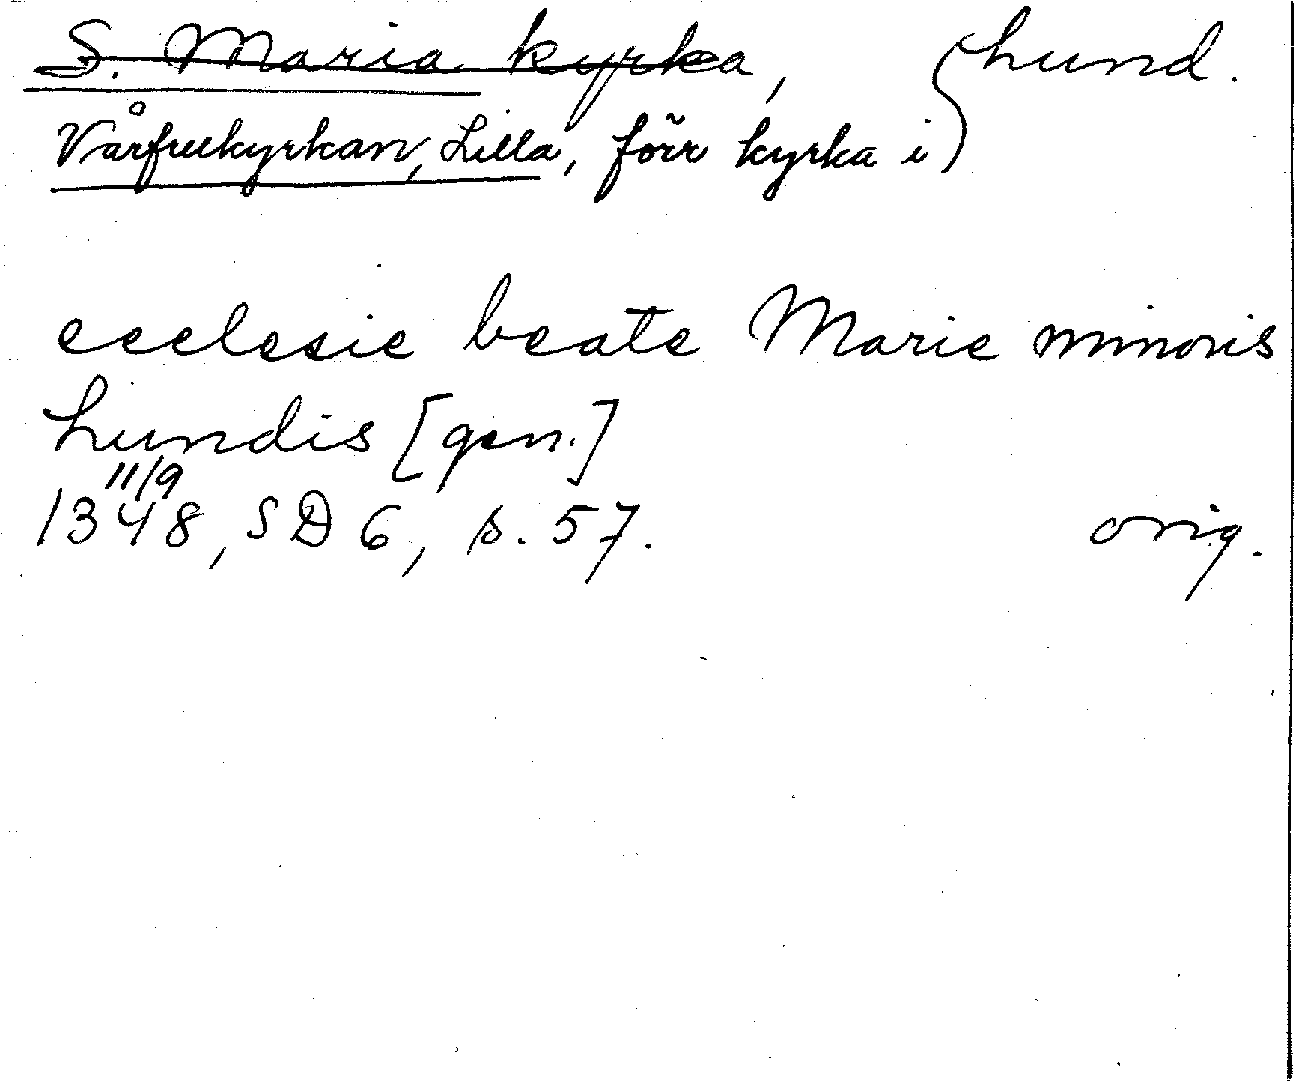 S. Maria kyrka, Lund.
Vårfrukyrkan, Lilla, förr kyrka i
ecclesie beate Marie minoris
Lundis [gen.]
11/9
1348, SD 6, s. 57. orig.